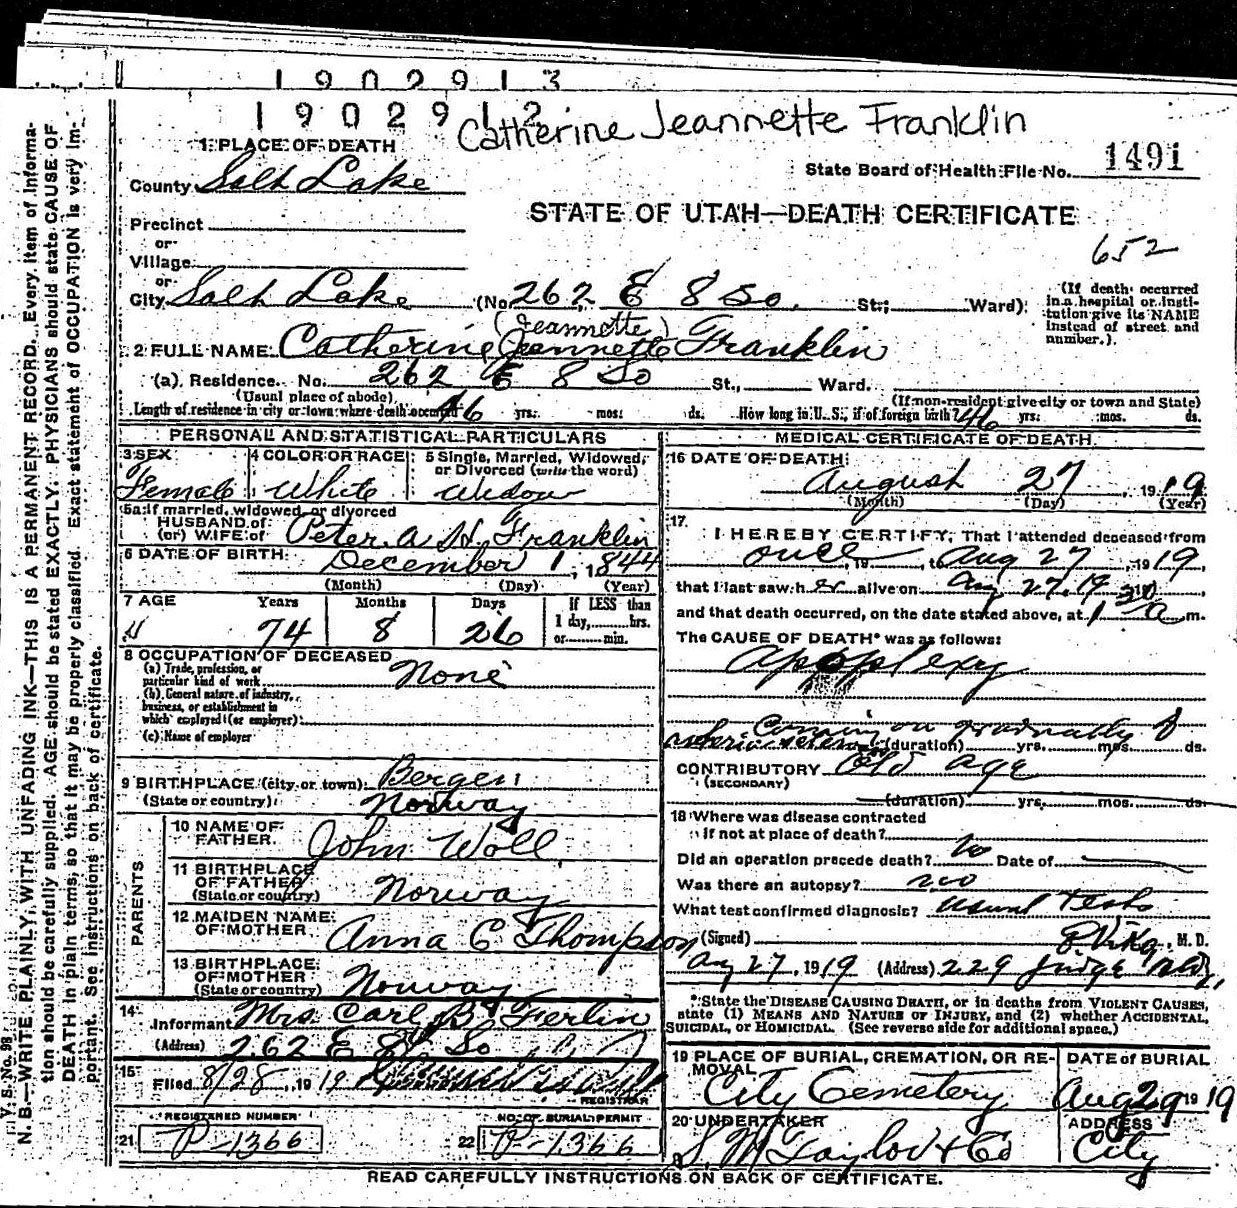 1902913
1902912
Catherine Jeannette Franklin
1 PLACE OF DEATH
State Board of Health File No. 1491
County Salt Lake
STATE OF UTAH—DEATH CERTIFICATE
Precinct
or
652
Village
or
City Salt Lake (No. 262 E 8 So. St; Ward)
(If death occurred in a hospital or institution give its NAME instead of street and number.)
(Jeannette)
2 FULL NAME Catherine Jeannette Franklin
(a) Residence. No. 262 E 8 So St., Ward.
(Usual place of abode) (If non-resident give city or town and State)
Length of residence in city or town where death occurred 46 yrs. mos. ds. How long in U. S., if of foreign birth? 46 yrs. mos. ds.
PERSONAL AND STATISTICAL PARTICULARS
3 SEX Female
4 COLOR OR RACE White
5 Single, Married, Widowed, or Divorced (write the word) Widow
5a If married, widowed, or divorced
HUSBAND of
(or) WIFE of Peter A. H. Franklin
6 DATE OF BIRTH December 1, 1844
(Month) (Day) (Year)
7 AGE Years Months Days If LESS than 1 day, hrs. or min.
74 8 26
8 OCCUPATION OF DECEASED
(a) Trade, profession, or particular kind of work None
(b) General nature of industry, business, or establishment in which employed (or employer)
(c) Name of employer
9 BIRTHPLACE (city or town) Bergen
(State or country) Norway
PARENTS
10 NAME OF FATHER John Woll
11 BIRTHPLACE OF FATHER (State or country) Norway
12 MAIDEN NAME OF MOTHER Anna C Thompson
13 BIRTHPLACE OF MOTHER (State or country) Norway
14
Informant Mrs Carl B. Ferlin
(Address) 262 E 8 So
15
Filed 8/28, 1919
REGISTRAR
REGISTERED NUMBER
21 P-1366
NO. OF BURIAL PERMIT
22 P-1366
MEDICAL CERTIFICATE OF DEATH
16 DATE OF DEATH August 27, 1919
(Month) (Day) (Year)
17. I HEREBY CERTIFY, That I attended deceased from
once, 19, to Aug 27, 1919,
that I last saw h er alive on Aug 27, 19,
and that death occurred, on the date stated above, at 1 30 a m.
The CAUSE OF DEATH* was as follows:
apoplexy
Coming on gradually of
arteriosclerosis (duration) yrs. mos. ds.
CONTRIBUTORY Old age
(SECONDARY)
(duration) yrs. mos. ds.
18 Where was disease contracted
if not at place of death?
Did an operation precede death? no Date of
Was there an autopsy? no
What test confirmed diagnosis? usual tests
(Signed) M. D.
Aug 27, 1919 (Address) 229 Judge Bldg,
*State the DISEASE CAUSING DEATH, or in deaths from VIOLENT CAUSES, state (1) MEANS AND NATURE OF INJURY, and (2) whether ACCIDENTAL, SUICIDAL, or HOMICIDAL. (See reverse side for additional space.)
19 PLACE OF BURIAL, CREMATION, OR REMOVAL City Cemetery
DATE of BURIAL Aug 29 1919
20 UNDERTAKER S. M. Taylor & Co
ADDRESS City
READ CAREFULLY INSTRUCTIONS ON BACK OF CERTIFICATE.
V. S. No. 98
N. B.—WRITE PLAINLY, WITH UNFADING INK—THIS IS A PERMANENT RECORD. Every item of information should be carefully supplied. AGE should be stated EXACTLY. PHYSICIANS should state CAUSE OF DEATH in plain terms, so that it may be properly classified. Exact statement of OCCUPATION is very important. See instructions on back of certificate.